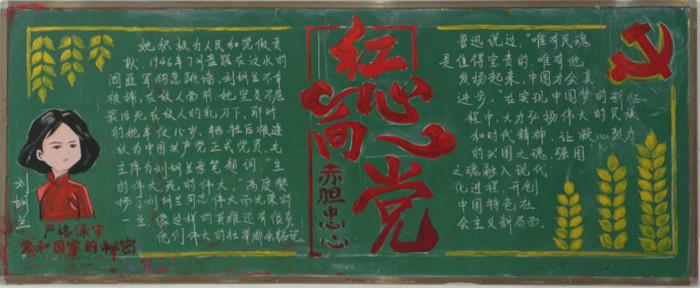 她积极为人民和党做贡
献。1946年7月盘踞在汶水的
阎匪军狗急跳墙,刘胡兰不幸
被捕,在敌人面前,她坚贞不屈
最后死在敌人的轧刀下,那时
的她年仅15岁。牺牲后被追
认为中国共产党正式党员,毛
主席为刘胡兰亲笔题词:“生
的伟大,死的伟大。”高度赞
扬了刘胡兰同志伟大而光荣的
一生。像这样的英雄还有很多,
他们伟大的壮举都
刘胡兰
严格保守
党和国家的秘密
红心向党
赤胆忠心
鲁迅说过,“唯有民魂
是值得宝贵的,唯有他
发扬起来,中国才会真
进步。”在实现中国梦的新征
程中,大力弘扬伟大的民族
和时代精神,让凝心聚力
的兴国之魂、强国
之魂融入现代
化进程,开创
中国特色社
会主义新局面。